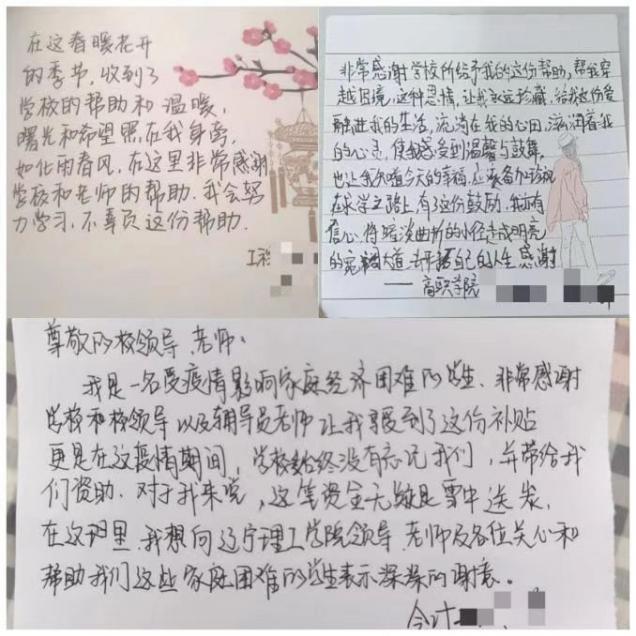 在这春暖花开
的季节,收到了
学校的帮助和温暖,
曙光和希望照在我身旁,
如化雨春风,在这里非常感谢
学校和老师的帮助.我会努
力学习,不辜负这份帮助.
非常感谢学校所给予我的这份帮助,帮我穿
越困境,这种恩情,让我永远珍藏,给我这份爱
融进我的生活,流淌在我的心田,滋润着我
的心灵,使我感受到温馨与鼓舞,
也让我知道今天的幸福,应该备加珍视
在求学之路上,有这份鼓励,我亦有
信心,将暗淡曲折的小径走成明亮
的宽阔大道,去开拓自己的人生感谢
——高职学院
尊敬的校领导、老师:
我是一名受疫情影响家庭经济困难的学生、非常感谢
学校和校领导以及辅导员老师让我享受到了这份补贴
更是在这疫情期间,学校始终没有忘记我们,并带给我
们资助.对于我来说,这笔资金无疑是雪中送炭,
在这里,我想向辽宁理工学院领导、老师及各位关心和
帮助我们这些家庭困难的学生表示深深的谢意。
会计